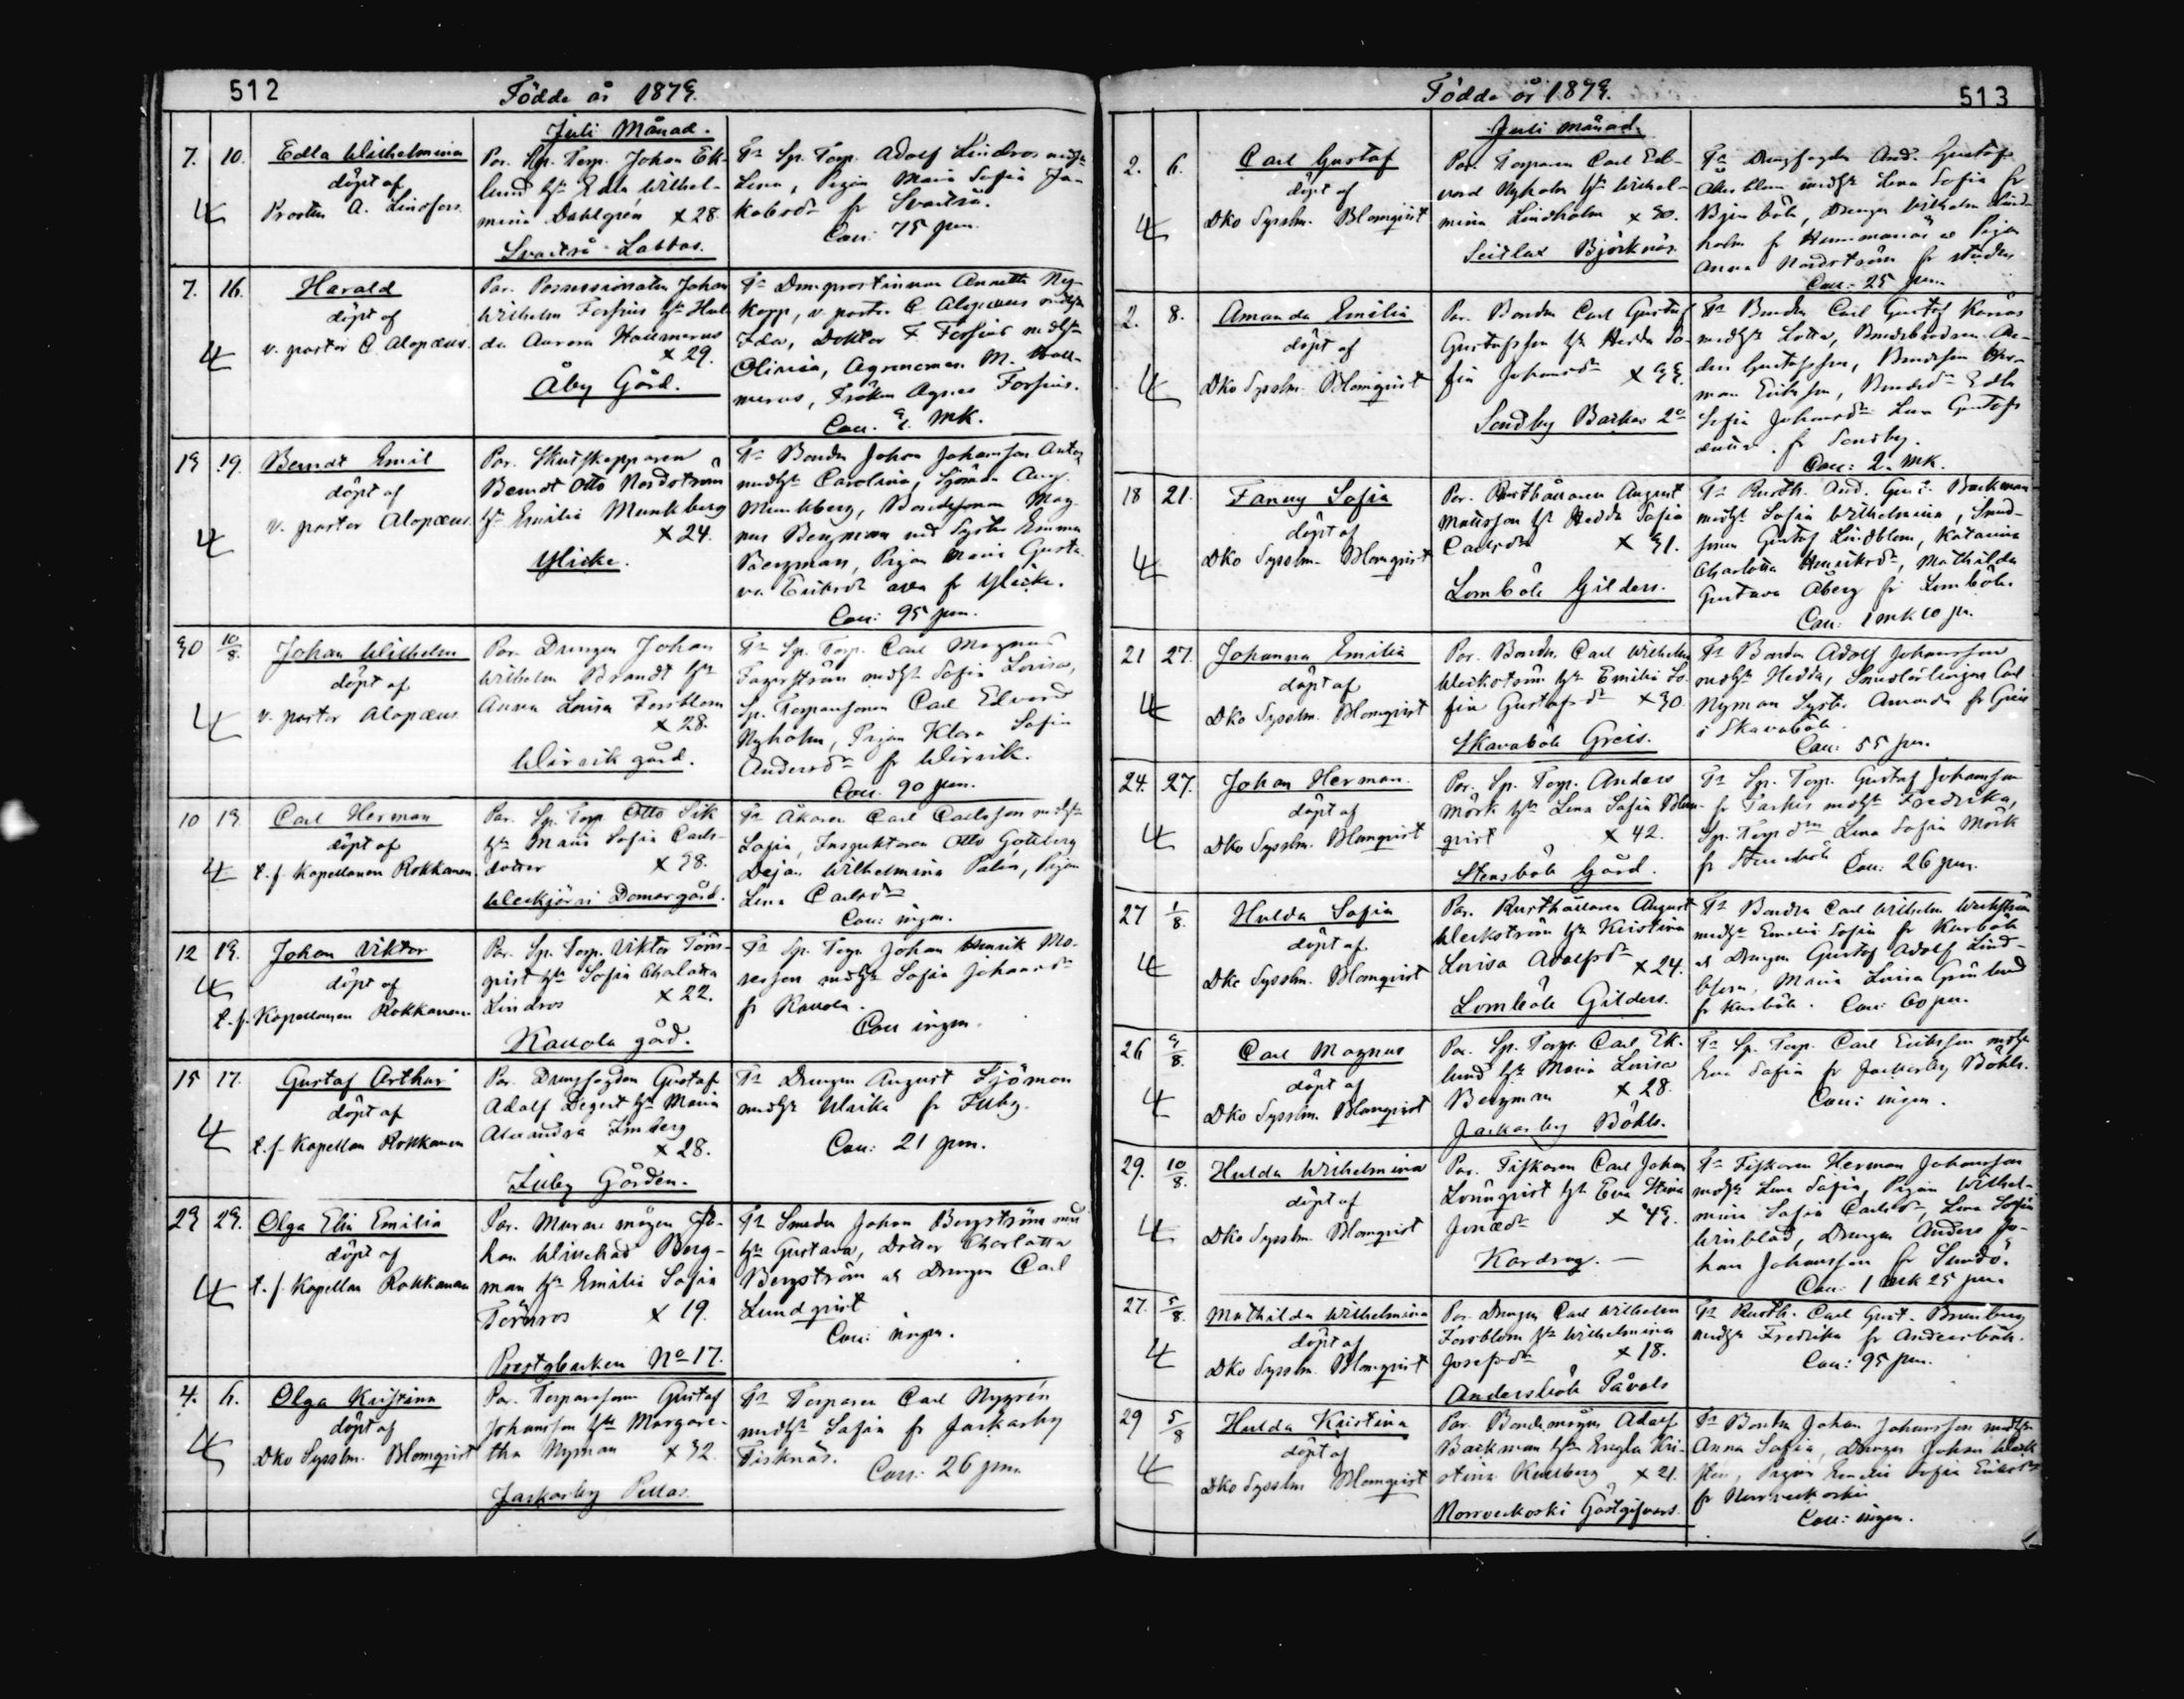 512
Födde år 1879.
Juli Månad.
7. 10. Edla Wilhelmina
döpt af
Prosten A. Lindfors.
Par. Sp. Torp. Johan Ek-
lund hu Edla Wilhel-
mina Dahlgrén x 28.
Svartså Labbas.
Fr Sp. Torp. Adolf Lindros
Lena, Pigan Maria Sofia Ja-
kobsdr fr Svartså.
Coll: 75 pen.
7. 16. Harald
döpt af
v. pastor C. Alopæus.
Par. Possessionaten Johan
Wilhelm Forsius hu Hul-
da Aurora
x 29.
Åby Gård.
Fr Domprostinnan Annette Ny-
kopp, v. pastor C. Alopæus
Ida, Doktor F Forsius
Olivia, Agronomen M.
Fröken Agnes Forsius.
Coll. 3. mk.
13 19. Berndt Emil
döpt af
v. pastor Alopæus.
Par. Skutskepparen
Berndt Otto Nordström
hu Emilia Munkberg
x 24.
Ylicke.
Fr Bonden Johan Johansson
Carolina, Sjöman Aug.
Munkberg, Bondesonen Mag-
nus Bergman med Syster Emma
Bergman, Pigan Maria Gusta-
va Eriksdr alla fr Ylicke.
Coll: 95 pen.
30 10/8. Johan Wilhelm
döpt af
v. pastor Alopæus
Par. Drengen Johan
Wilhelm Brandt hu
Anna Lovisa Forsblom
x 28.
Wirvik gård.
Fr Sp. Torp. Carl Magnus
Fagerström Sofia Lovisa,
Sp. Torparsonen Carl Edvard
Nyholm, Pigan Klara Sofia
Andersdr fr Wirvik.
Coll. 90 pen.
10 13. Carl Herman
döpt af
t. f. Kapellanen Rokkanen.
Par. Sp. Torp Otto Sik
hu Maria Sofia Carls-
dotter x 38.
Weckjärvi Domargård.
Fr Åkaren Carl Carlsson
Sofia, Inspektoren Otto Goteberg
Dejan Wilhelmina Palin, Pigan
Lena Carlsdr
Coll: ingen.
12 13. Johan Viktor
döpt af
t. f. Kapellanen Rokkanen.
Par. Sp. Torp. Viktor Törn-
qvist hu Sofia Charlotta
Lindros x 22.
Kallola gård.
Fr Sp. Torp. Johan Henrik
Sofia Johansdr
fr Kallola.
Coll ingen.
15 17. Gustaf Arthur
döpt af
t. f. Kapellan Rokkanen
Par. Drengfogden Gustaf
Adolf Degert hu Maria
Alexandra Imberg
x 28.
Illby Gården.
Fr Drengen August Sjöman
Ulrika fr Illby.
Coll: 21 pen.
23 29. Olga Elin Emilia
döpt af
t. f. Kapellan Rokkanen
Par. Murare mågen Jo-
han Winchad Berg-
man hu Emilia Sofia
Törnros x 19.
Prestgbacken No 17.
Fr Smeden Johan Bergström med
hu Gustava, Dotter Charlotta
Bergström och Drengen Carl
Lundqvist
Coll: ingen.
4. 6. Olga Kristina
döpt af
Dko Sysslm. Blomqvist
Par. Torparesonen Gustaf
Johansson hu Margare-
tha Nyman x 32.
Jackarby Pellas.
Fr Torparen Carl Nygrén
Sofia fr Jackarby
Fisknäs.
Coll: 26 pen.
513
Födde år 1879.
Juli månad.
2. 6. Carl Gustaf
döpt af
Dko Sysslm. Blomqvist
Par. Torparen Carl Ed-
vard Nyholm hu Wilhel-
mina Lindholm x 30.
Seitlax Björknäs.
Fr Drengfogden And. Gustaf
Åkerblom Lena Sofia fr
Drengen Wilhelm Lind-
holm fr o Pigan
Anna Nordström fr staden
Coll: 25 pen.
2. 8. Amanda Emilia
döpt af
Dko Sysslm. Blomqvist
Par. Bonden Carl Gustaf
Gustafsson hu Hedda So-
fia Johansdr x 33.
Sondby Backas 2o
Fr Bonden Carl Gustaf
Lotta,
Gustafsson, Bondeson Her-
man Eriksson, Bondedr Edla
Sofia Johansdr Lena Gustafs
dotter. fr Sondby.
Coll: 2. mk.
18 21. Fanny Sofia
döpt af
Dko Sysslm. Blomqvist
Par. Rusthållaren August
Mattsson hu Hedda Sofia
Carlsdr x 31.
Lomböle Gilders.
Fr Rusth. And. Gust. Backman
Sofia Wilhelmina,
Gustaf Lindblom, Katarina
Charlotta Henriksdr, Mathilda
Gustava Åberg fr Lomböle.
Coll: 1 mk 10 pen.
21 27. Johanna Emilia
döpt af
Dko Sysslm. Blomqvist
Par. Bonden Carl Wilhelm
Weckström hu Emilia So-
fia Gustafsdr x 30.
Skavaböle Greis.
Fr Bonden Adolf Johansson
Hedda, Smedlärlingen Carl
Nyman Syster Amanda fr Greis
i Skavaböle.
Coll: 55 pen.
24. 27. Johan Herman.
döpt af
Dko Sysslm. Blomqvist
Par. Sp. Torp. Anders
Mörk hu Lena Sofia Blom-
qvist x 42.
Stensböle Gård.
Fr Sp. Torp. Gustaf Johansson
fr Tarkis Fredrika,
Sp. Torp drn Lena Sofia Mörk
fr Stensböle Coll: 26 pen.
27 1/8. Hulda Sofia
döpt af
Dko Sysslm. Blomqvist
Par. Rusthållaren August
Weckström hu Kristina
Lovisa Adolfsdr x 24.
Lomböle Gilders.
Fr Bonden Carl Wilhelm Weckström
Emelie Sofia fr
och Drengen Gustaf Adolf Lind-
blom, Maria Lovisa Grönlund
Coll: 60 pen.
26 3/8. Carl Magnus
döpt af
Dko Sysslm. Blomqvist
Par. Sp. Torp. Carl Ek-
lund hu Maria Lovisa
Bergman x 28.
Jackarby Böhls.
Fr Sp. Torp. Carl Eriksson
Eva Sofia fr Jackarby Böhls.
Coll: ingen.
29. 10/8. Hulda Wilhelmina
döpt af
Dko Sysslm. Blomqvist
Par. Fiskaren Carl Johan
Lönnqvist hu Eva Stina
x 43.
Kardrag. —
Fr Fiskaren Herman Johansson
Lena Sofia, Pigan Wilhel-
mina Sofia Carlsdr, Lena Sofia
Winblad, Drengen Anders Jo-
han Johansson fr Sundö.
Coll: 1 mk 25 pen.
27. 5/8. Mathilda Wilhelmina
döpt af
Dko Sysslm. Blomqvist
Par. Drengen Carl Wilhelm
Forsblom hu Wilhelmina
Josefsdr x 18.
Andersböle Påvals
Fr Rusth. Carl Gust. Brunberg
Fredrika fr Andersböle.
Coll: 95 pen.
29 5/8 Hulda Kristina
döpt af
Dko Sysslm Blomqvist
Par. Bondemågen Adolf
Backman hu Engla Kri-
stina Kullberg x 21.
Norrveckoski Gästgifvars
Fr Bonden Johan Johansson
Anna Sofia, Drengen Johan Weck
sten, Pigan Emelie Sofia Eriksdr
fr Norrveckoski
Coll: ingen.